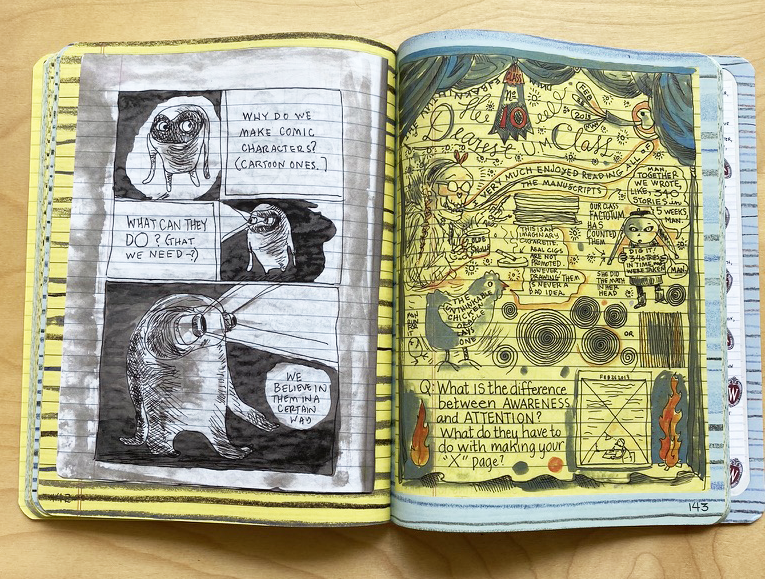 WHY DO WE
MAKE COMIC
CHARACTERS?
(CARTOON ONES.)
WHAT CAN THEY
DO? (THAT
WE NEED-?)
WE
BELIEVE IN
THEM IN A
CERTAIN
WAY
142
CLASS
No
10
FEB
2013
The
Dearest
Class
VERY MUCH ENJOYED READING ALL OF
THE MANUSCRIPTS
MAN,
TOGETHER
WE WROTE,
LIKE, 340
STORIES IN
5 WEEKS
MAN.
OUR CLASS
FACTOTUM
HAS
COUNTED
THEM
THIS IS AN
IMAGINARY
CIGARETTE.
REAL CIGS
ARE NOT
PROMOTED
HOWEVER
DRAWING THEM
IS NEVER A
BAD IDEA
SHE DID
THE MATH
IN HER
HEAD
DID IT!
THE
UNTHINKABLE
CHICKEN
RUN
FOR
IT
OR
Q: What is the difference
between AWARENESS
and ATTENTION?
What do they have to
do with making your
"X" page?
143